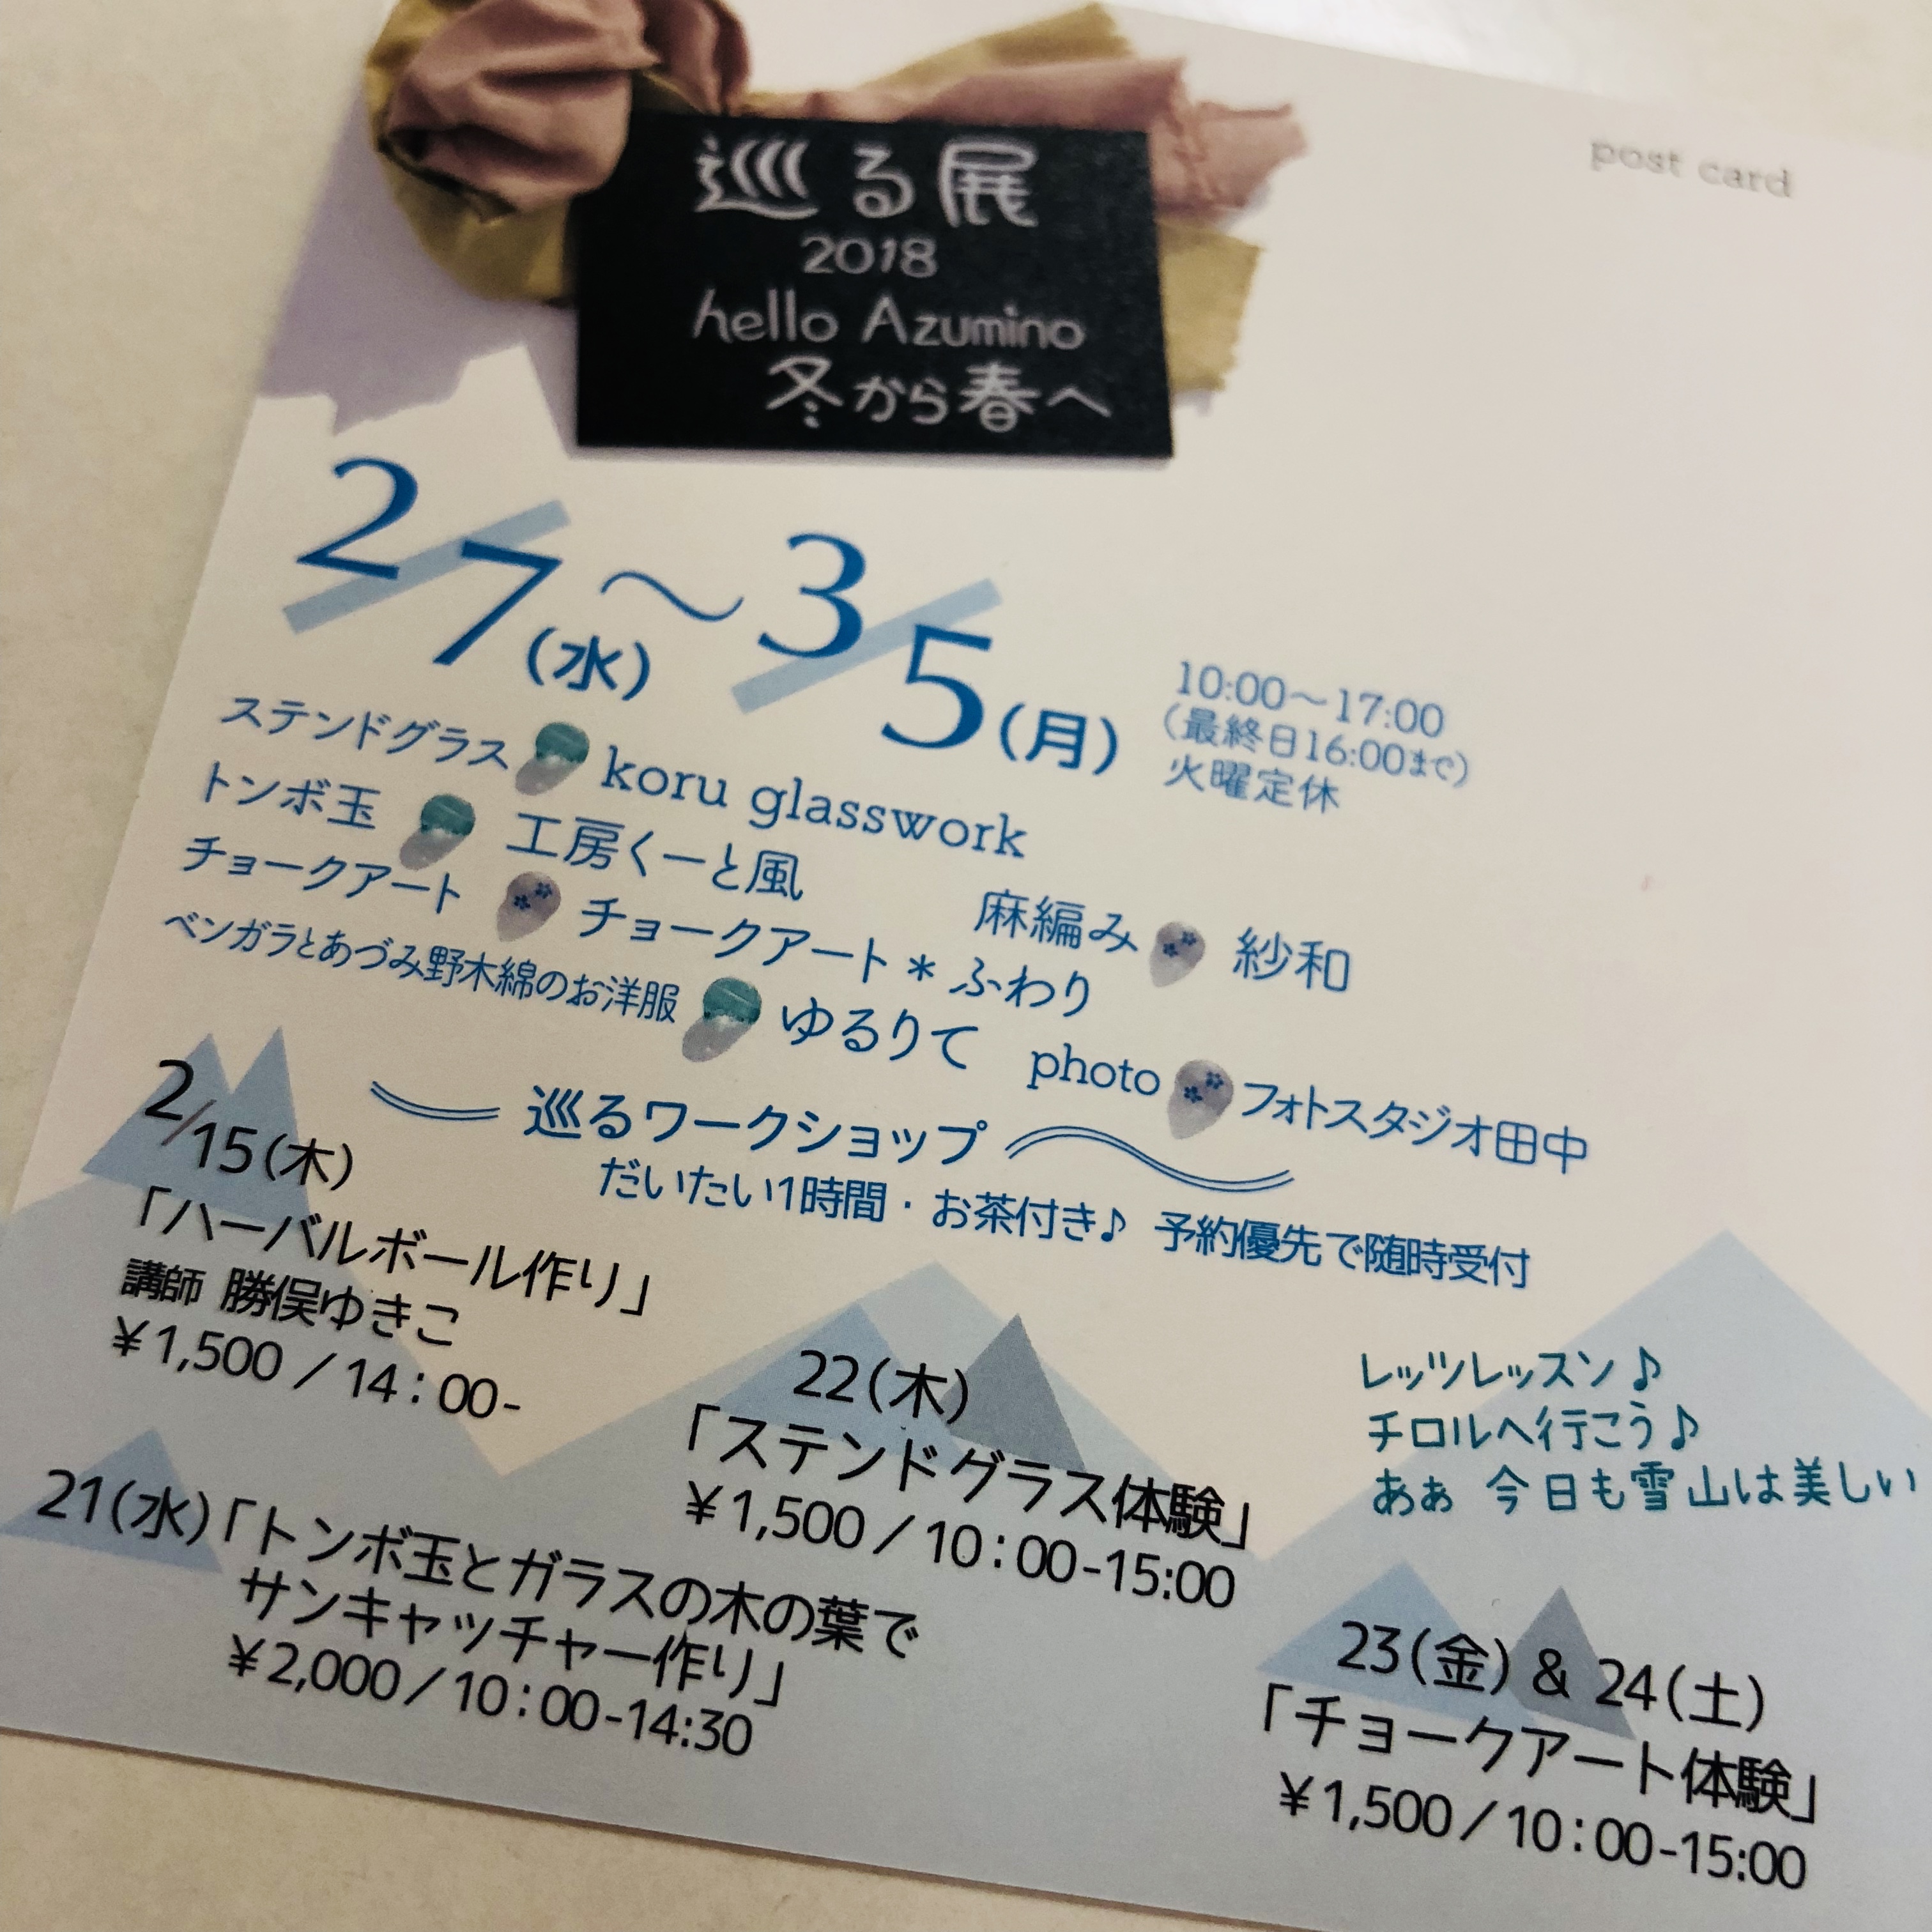 post card
巡る展
2018
hello Azumino
冬から春へ
2/7(水)～3/5(月)
10:00～17:00
(最終日16:00まで)
火曜定休
ステンドグラス koru glasswork
トンボ玉 工房くーと風
麻編み 紗和
チョークアート チョークアート＊ふわり
ベンガラとあづみ野木綿のお洋服 ゆるりて
photo フォトスタジオ田中
巡るワークショップ
だいたい1時間・お茶付き♪ 予約優先で随時受付
2/15(木)
「ハーバルボール作り」
講師 勝俣ゆきこ
¥1,500／14：00-
21(水)「トンボ玉とガラスの木の葉で
サンキャッチャー作り」
¥2,000／10：00-14:30
22(木)
「ステンドグラス体験」
¥1,500／10：00-15:00
レッツレッスン♪
チロルへ行こう♪
あぁ 今日も雪山は美しい
23(金) & 24(土)
「チョークアート体験」
¥1,500／10：00-15:00